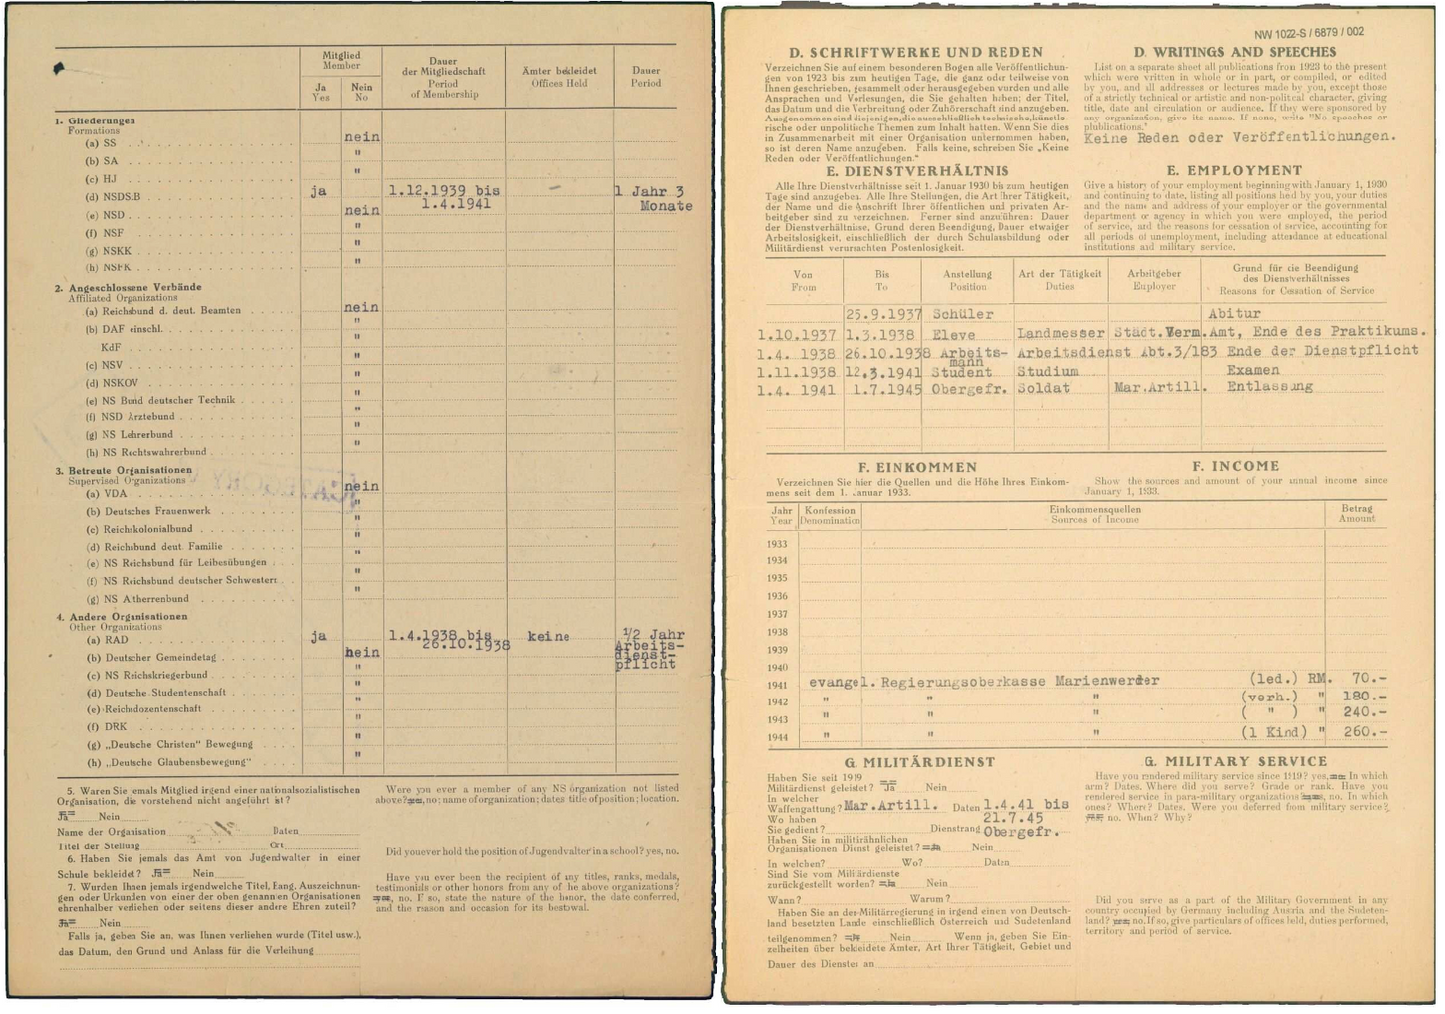 Mitglied
Member
Ja
Yes
Nein
No
Dauer
der Mitgliedschaft
Period
of Membership
Ämter bekleidet
Offices Held
Dauer
Period
1. Gliederungen
Formations
(a) SS nein
(b) SA "
(c) HJ "
(d) NSDSB ja 1.12.1939 bis 1.4.1941 — 1 Jahr 3 Monate
(e) NSD nein
(f) NSF "
(g) NSKK "
(h) NSFK "
2. Angeschlossene Verbände
Affiliated Organizations
(a) Reichsbund d. deut. Beamten nein
(b) DAF einschl. "
KdF "
(c) NSV "
(d) NSKOV "
(e) NS Bund deutscher Technik "
(f) NSD Ärztebund "
(g) NS Lehrerbund "
(h) NS Rechtswahrerbund "
3. Betreute Organisationen
Supervised Organizations
(a) VDA nein
(b) Deutsches Frauenwerk "
(c) Reichskolonialbund "
(d) Reichsbund deut. Familie "
(e) NS Reichsbund für Leibesübungen "
(f) NS Reichsbund deutscher Schwestern "
(g) NS Altherrenbund "
4. Andere Organisationen
Other Organizations
(a) RAD ja 1.4.1938 bis 26.10.1938 keine 1/2 Jahr Arbeits-dienst-pflicht
(b) Deutscher Gemeindetag nein
(c) NS Reichskriegerbund "
(d) Deutsche Studentenschaft "
(e) Reichsdozentenschaft "
(f) DRK "
(g) „Deutsche Christen“ Bewegung "
(h) „Deutsche Glaubensbewegung“ "
CATEGORY
5. Waren Sie jemals Mitglied irgend einer nationalsozialistischen
Organisation, die vorstehend nicht angeführt ist?
Ja Nein
Name der Organisation Daten
Titel der Stellung Ort
6. Haben Sie jemals das Amt von Jugendwalter in einer
Schule bekleidet? Ja Nein
7. Wurden Ihnen jemals irgendwelche Titel, Rang, Auszeichnun-
gen oder Urkunden von einer der oben genannten Organisationen
ehrenhalber verliehen oder seitens dieser andere Ehren zuteil?
Ja Nein
Falls ja, geben Sie an, was Ihnen verliehen wurde (Titel usw.),
das Datum, den Grund und Anlass für die Verleihung
Were you ever a member of any NS organization not listed
above? yes, no; name of organization; dates title of position; location.
Did you ever hold the position of Jugendwalter in a school? yes, no.
Have you ever been the recipient of any titles, ranks, medals,
testimonials or other honors from any of the above organizations?
yes, no. If so, state the nature of the honor, the date conferred,
and the reason and occasion for its bestowal.
NW 1022-S / 6879 / 002
D. SCHRIFTWERKE UND REDEN
Verzeichnen Sie auf einem besonderen Bogen alle Veröffentlichun-
gen von 1923 bis zum heutigen Tage, die ganz oder teilweise von
Ihnen geschrieben, gesammelt oder herausgegeben wurden und alle
Ansprachen und Vorlesungen, die Sie gehalten haben; der Titel,
das Datum und die Verbreitung oder Zuhörerschaft sind anzugeben.
Ausgenommen sind diejenigen, die ausschließlich technische, künstle-
rische oder unpolitische Themen zum Inhalt hatten. Wenn Sie dies
in Zusammenarbeit mit einer Organisation unternommen haben,
so ist deren Name anzugeben. Falls keine, schreiben Sie „Keine
Reden oder Veröffentlichungen.“
D. WRITINGS AND SPEECHES
List on a separate sheet all publications from 1923 to the present
which were written in whole or in part, or compiled, or edited
by you, and all addresses or lectures made by you, except those
of a strictly technical or artistic and non-political character, giving
title, date and circulation or audience. If they were sponsored by
any organization, give its name. If none, write "No speeches or
plublications."
Keine Reden oder Veröffentlichungen.
E. DIENSTVERHÄLTNIS
Alle Ihre Dienstverhältnisse seit 1. Januar 1930 bis zum heutigen
Tage sind anzugeben. Alle Ihre Stellungen, die Art Ihrer Tätigkeit,
der Name und die Anschrift Ihrer öffentlichen und privaten Ar-
beitgeber sind zu verzeichnen. Ferner sind anzuführen: Dauer
der Dienstverhältnisse, Grund deren Beendigung, Dauer etwaiger
Arbeitslosigkeit, einschließlich der durch Schulausbildung oder
Militärdienst verursachten Postenlosigkeit.
E. EMPLOYMENT
Give a history of your employment beginning with January 1, 1930
and continuing to date, listing all positions held by you, your duties
and the name and address of your employer or the governmental
department or agency in which you were employed, the period
of service, and the reasons for cessation of service, accounting for
all periods of unemployment, including attendance at educational
institutions and military service.
Von
From
Bis
To
Anstellung
Position
Art der Tätigkeit
Duties
Arbeitgeber
Employer
Grund für die Beendigung
des Dienstverhältnisses
Reasons for Cessation of Service
25.9.1937 Schüler Abitur
1.10.1937 1.3.1938 Eleve Landmesser Städt.Verm.Amt, Ende des Praktikums.
1.4. 1938 26.10.1938 Arbeits-mann Arbeitsdienst Abt.3/183 Ende der Dienstpflicht
1.11.1938 12.3.1941 Student Studium Examen
1.4. 1941 1.7.1945 Obergefr. Soldat Mar.Artill. Entlassung
F. EINKOMMEN
Verzeichnen Sie hier die Quellen und die Höhe Ihres Einkom-
mens seit dem 1. Januar 1933.
F. INCOME
Show the sources and amount of your annual income since
January 1, 1933.
Jahr
Year
Konfession
Denomination
Einkommensquellen
Sources of Income
Betrag
Amount
1933
1934
1935
1936
1937
1938
1939
1940
1941 evangel. Regierungsoberkasse Marienwerder (led.) RM. 70.-
1942 " " " (verh.) " 180.-
1943 " " " ( " ) " 240.-
1944 " " " (1 Kind) " 260.-
G. MILITÄRDIENST
Haben Sie seit 1919
Militärdienst geleistet? Ja Nein
In welcher
Waffengattung? Mar.Artill. Daten 1.4.41 bis 21.7.45
Wo haben
Sie gedient? Dienstrang Obergefr.
Haben Sie in militärähnlichen
Organisationen Dienst geleistet? Ja Nein
In welchen? Wo? Daten
Sind Sie vom Militärdienste
zurückgestellt worden? Ja Nein
Wann? Warum?
Haben Sie an der Militärregierung in irgend einen von Deutsch-
land besetzten Lande einschließlich Österreich und Sudetenland
teilgenommen? Ja Nein Wenn ja, geben Sie Ein-
zelheiten über bekleidete Ämter, Art Ihrer Tätigkeit, Gebiet und
Dauer des Dienstes an
G. MILITARY SERVICE
Have you rendered military service since 1919? yes, no In which
arm? Dates. Where did you serve? Grade or rank. Have you
rendered service in para-military organizations? yes, no. In which
ones? Where? Dates. Were you deferred from military service?
yes, no. When? Why?
Did you serve as a part of the Military Government in any
country occupied by Germany including Austria and the Sudeten-
land? yes, no. If so, give particulars of offices held, duties performed,
territory and period of service.